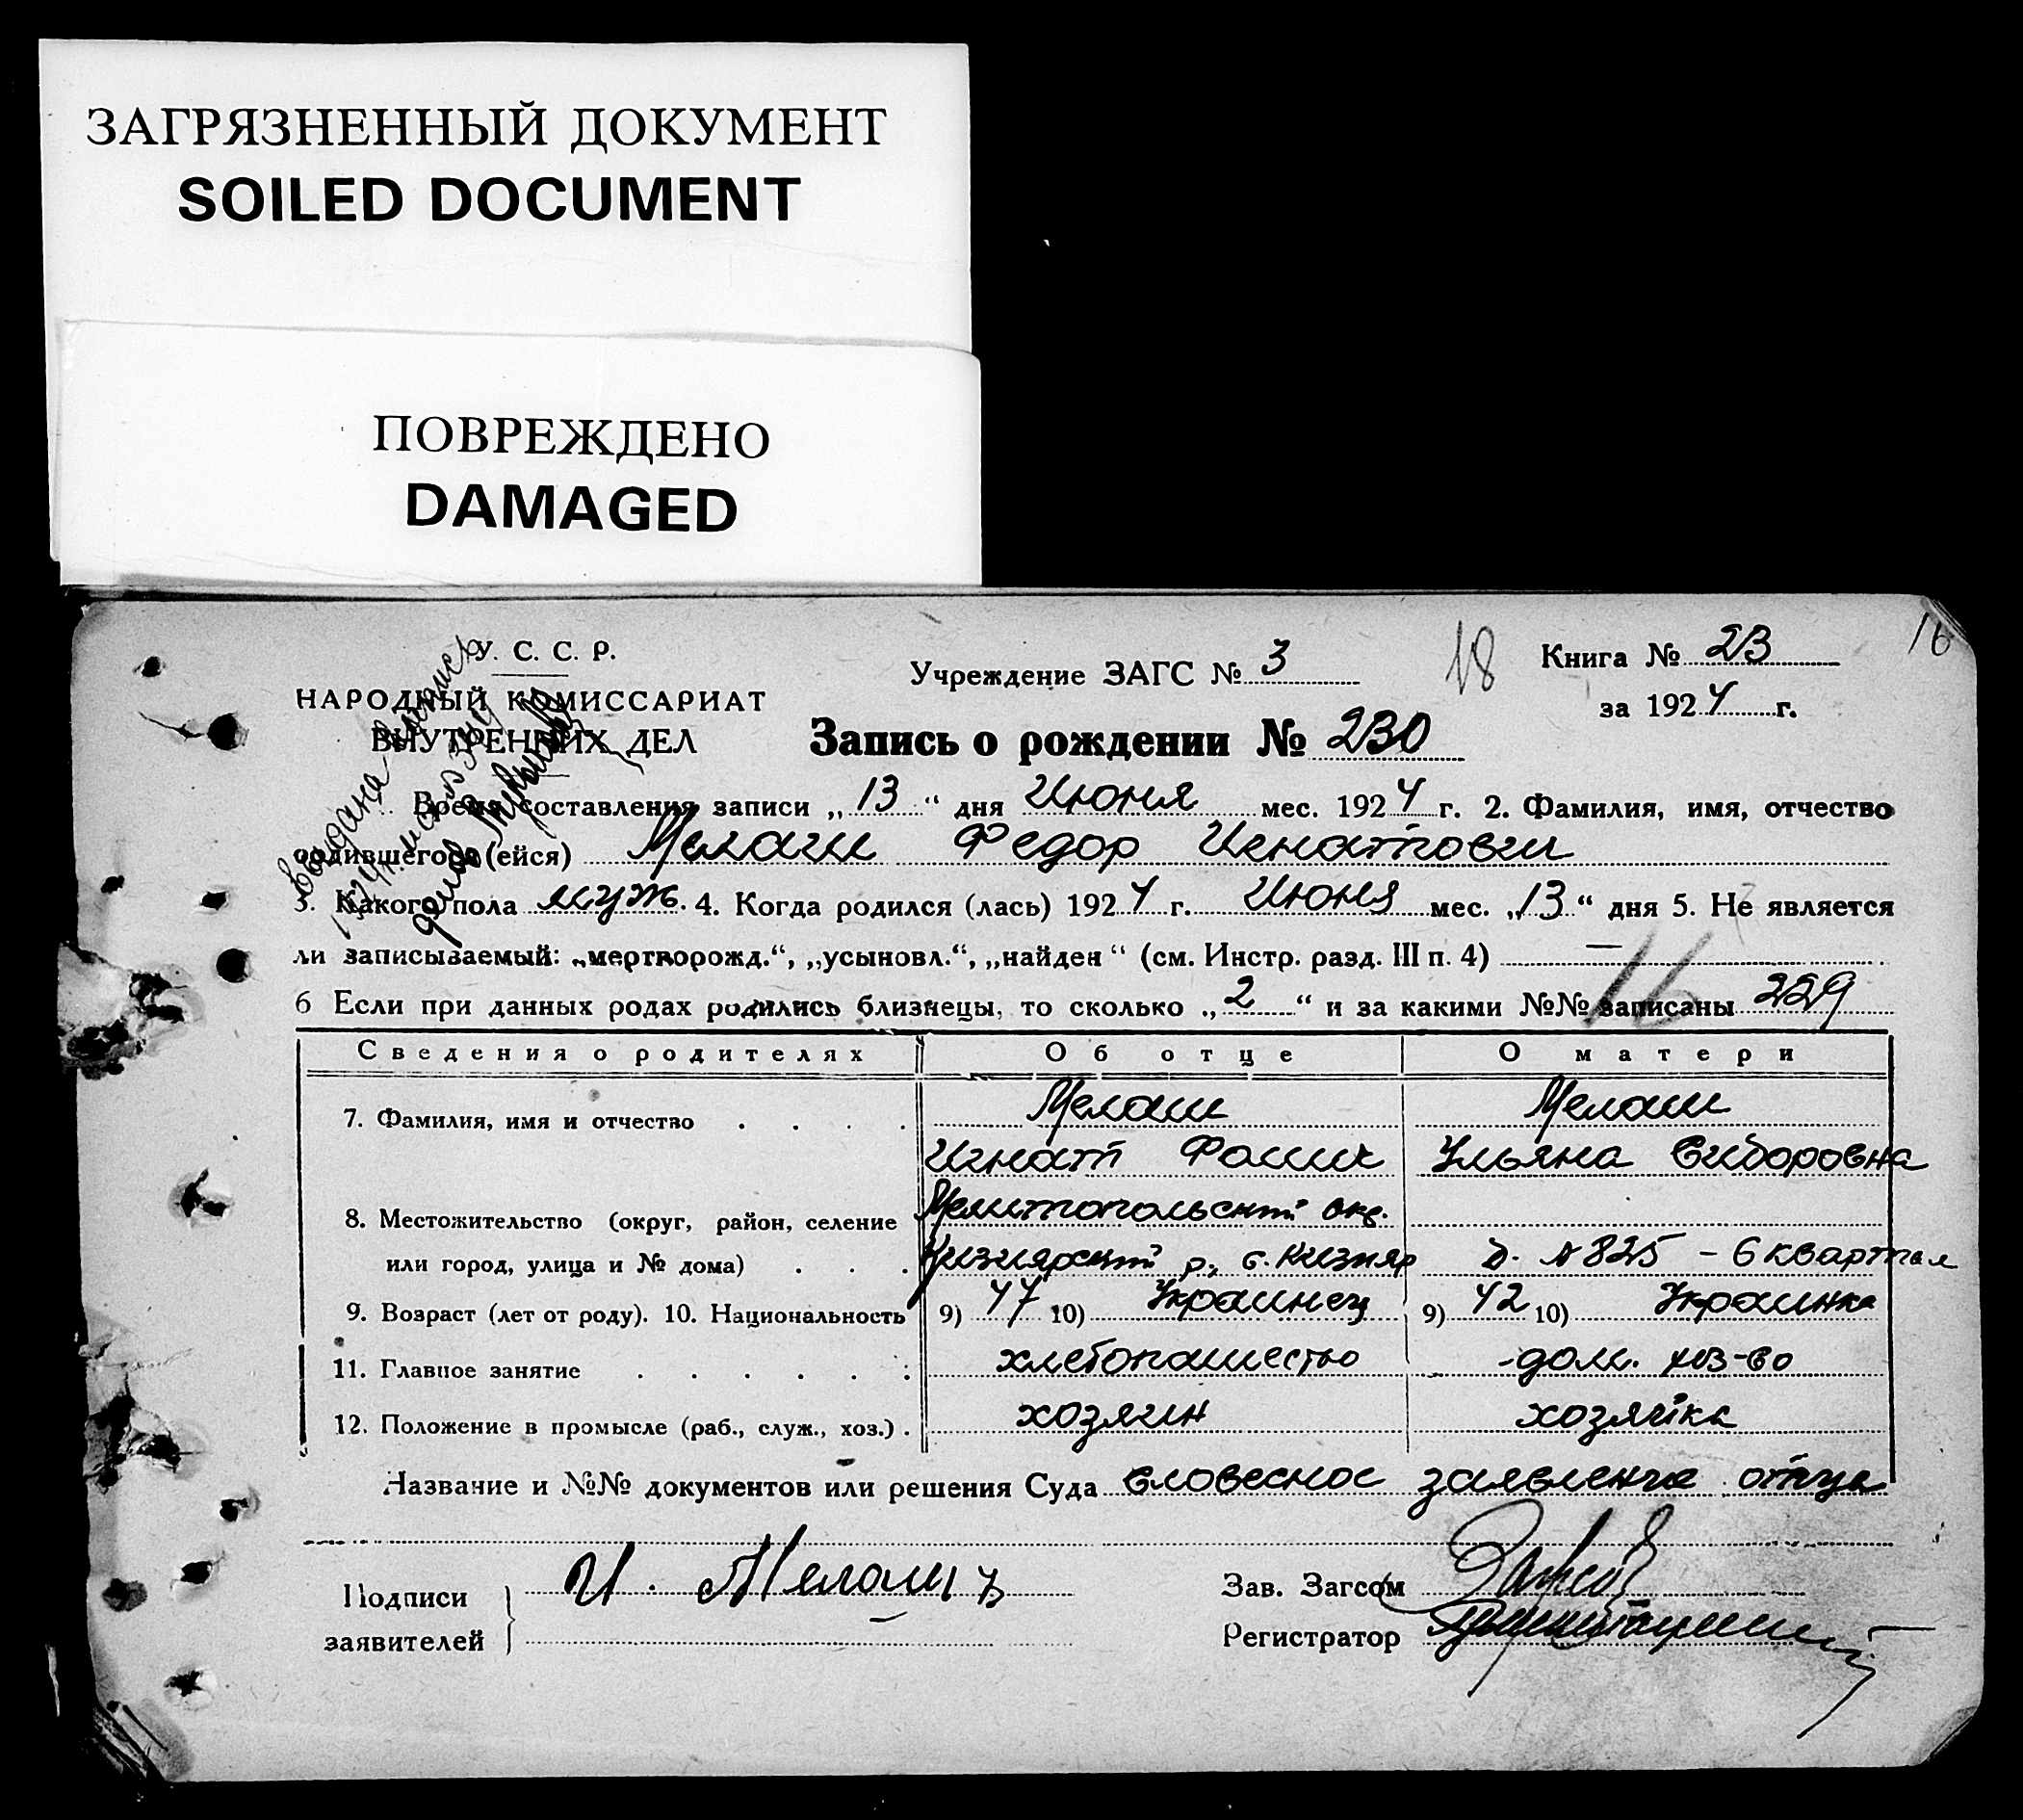 ЗАГРЯЗНЕННЫЙ ДОКУМЕНТ
SOILED DOCUMENT
ПОВРЕЖДЕНО
DAMAGED
16
У. С. С. Р.
НАРОДНЫЙ КОМИССАРИАТ
ВНУТРЕННИХ ДЕЛ
Выдана выпись
Учреждение ЗАГС № 3
18
Книга № 23
за 1924 г.
Запись о рождении № 230
Время составления записи „13“ дня Июня мес. 1924 г. 2. Фамилия, имя, отчество
родившегося (ейся) Мелаш Федор Игнатович
3. Какого пола муж. 4. Когда родился (лась) 1924 г. Июня мес. „13“ дня 5. Не является
ли записываемый: „мертворожд.“, „усыновл.“, „найден“ (см. Инстр. разд. III п. 4) —
16
6 Если при данных родах родились близнецы, то сколько „2“ и за какими №№ записаны 229
Сведения о родителях Об отце О матери
7. Фамилия, имя и отчество Мелаш Мелаш
Игнат Фомич Ульяна Сидоровна
8. Местожительство (округ, район, селение Мелитопольский окр.
или город, улица и № дома) Кизиярский р., с. Кизияр д. № 825 - 6 квартал
9. Возраст (лет от роду). 10. Национальность 9) 47 10) Украинец 9) 42 10) Украинка
11. Главное занятие хлебопашество дом. хоз-во
12. Положение в промысле (раб., служ., хоз.) хозяин хозяйка
Название и №№ документов или решения Суда словесное заявление отца
Подписи заявителей И. Мелашъ
Зав. Загсом
Регистратор